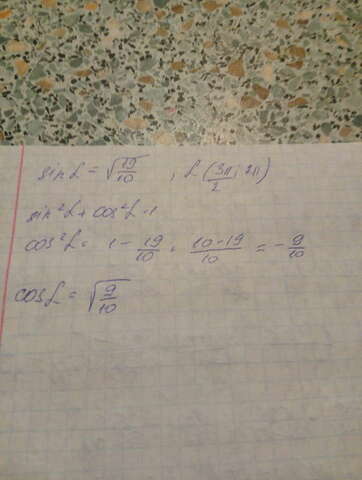 sin α = √19/10 , α (3π/2; 2π)
sin²α + cos²α = 1
cos²α = 1 - 19/10 = 10-19/10 = -9/10
cos α = √9/10